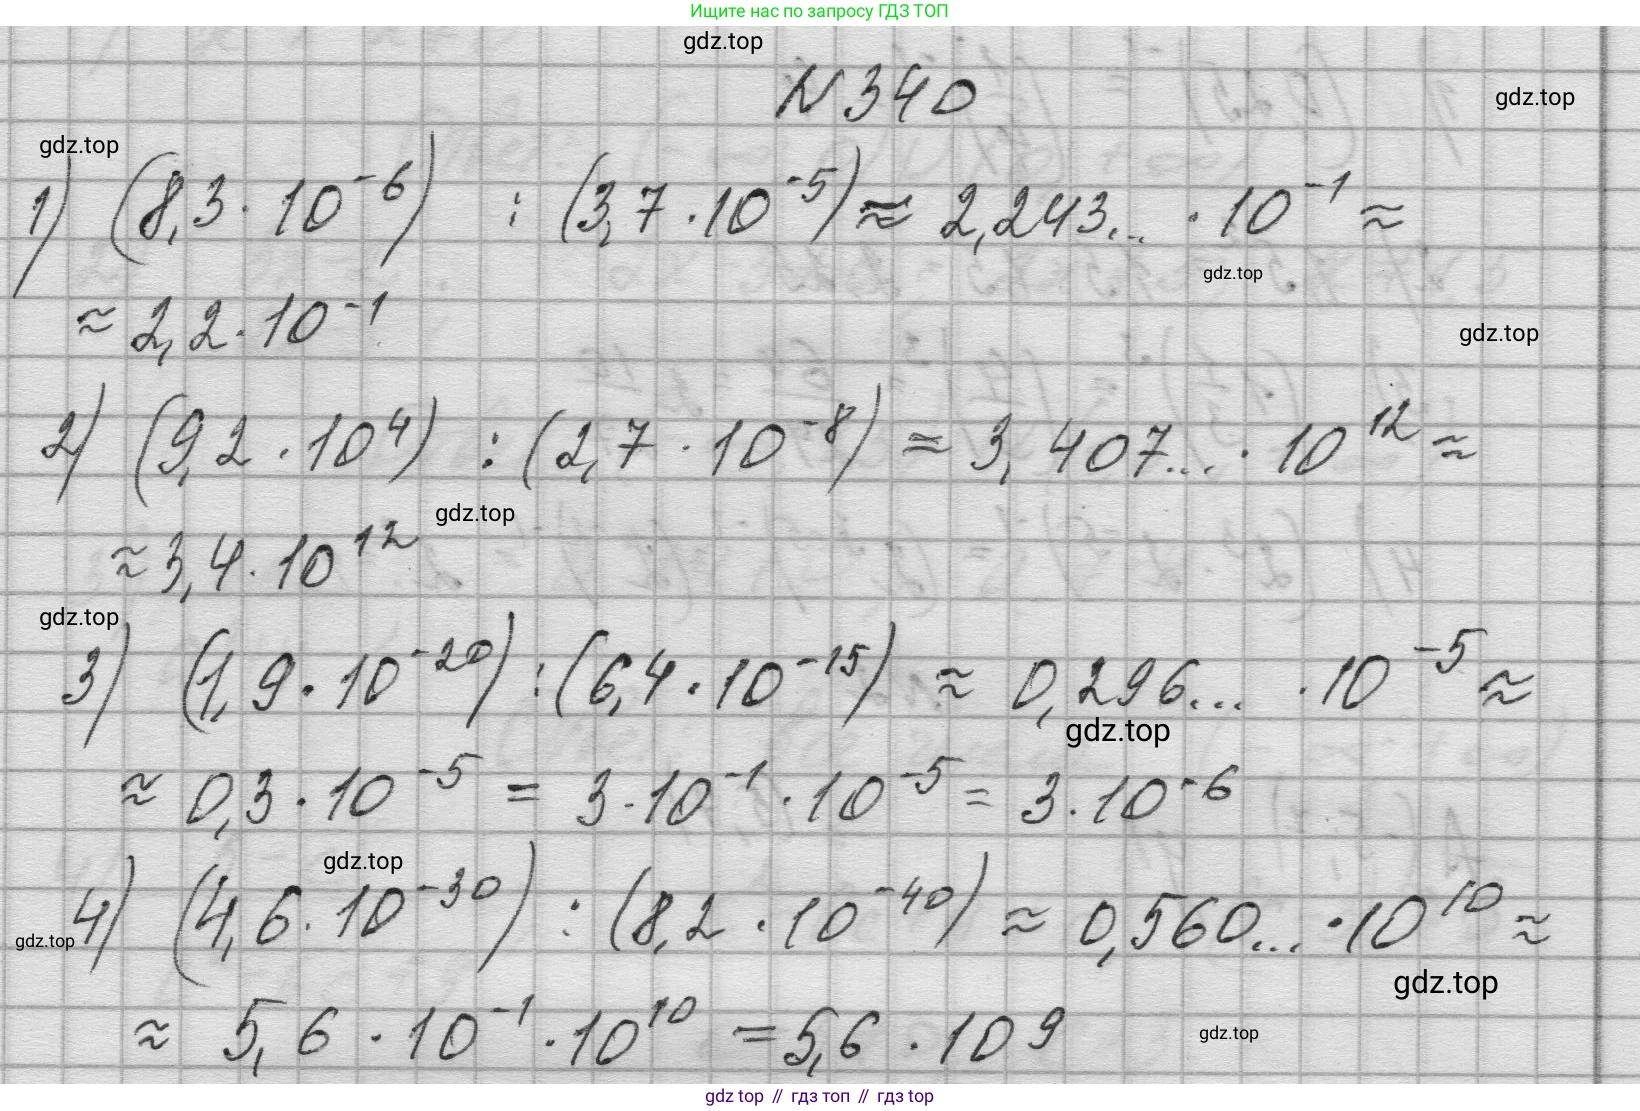 Ищите нас по запросу ГДЗ ТОП
gdz.top
N 340
gdz.top
gdz.top
1) (8,3 · 10⁻⁶) : (3,7 · 10⁻⁵) ≈ 2,243... · 10⁻¹ ≈
gdz.top
≈ 2,2 · 10⁻¹
gdz.top
2) (9,2 · 10⁴) : (2,7 · 10⁻⁸) = 3,407... · 10¹² ≈
gdz.top
≈ 3,4 · 10¹²
gdz.top
3) (1,9 · 10⁻²⁰) : (6,4 · 10⁻¹⁵) ≈ 0,296... · 10⁻⁵ ≈
gdz.top
≈ 0,3 · 10⁻⁵ = 3 · 10⁻¹ · 10⁻⁵ = 3 · 10⁻⁶
gdz.top
4) (4,6 · 10⁻³⁰) : (8,2 · 10⁻⁴⁰) ≈ 0,560... · 10¹⁰ ≈
gdz.top
gdz.top
≈ 5,6 · 10⁻¹ · 10¹⁰ = 5,6 · 10⁹
gdz.top
gdz top // гдз топ // gdz top